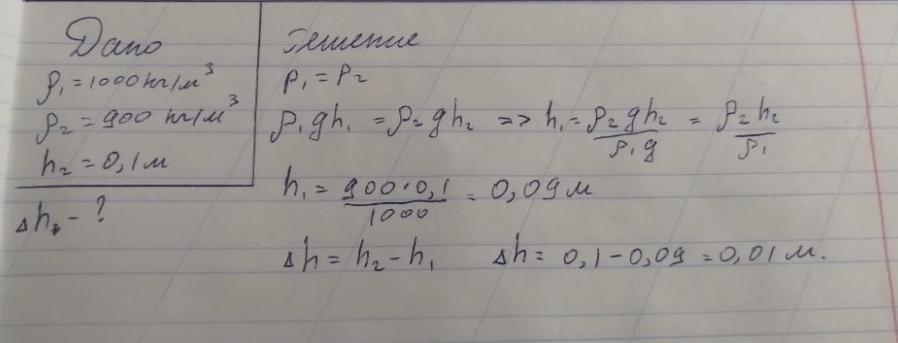 Дано
ρ₁ = 1000 кг/м³
ρ₂ = 900 кг/м³
h₂ = 0,1 м
Δh - ?
Решение
P₁ = P₂
ρ₁gh₁ = ρ₂gh₂ => h₁ = ρ₂gh₂/ρ₁g = ρ₂h₂/ρ₁
h₁ = 900·0,1/1000 = 0,09 м
Δh = h₂ - h₁ Δh = 0,1 - 0,09 = 0,01 м.